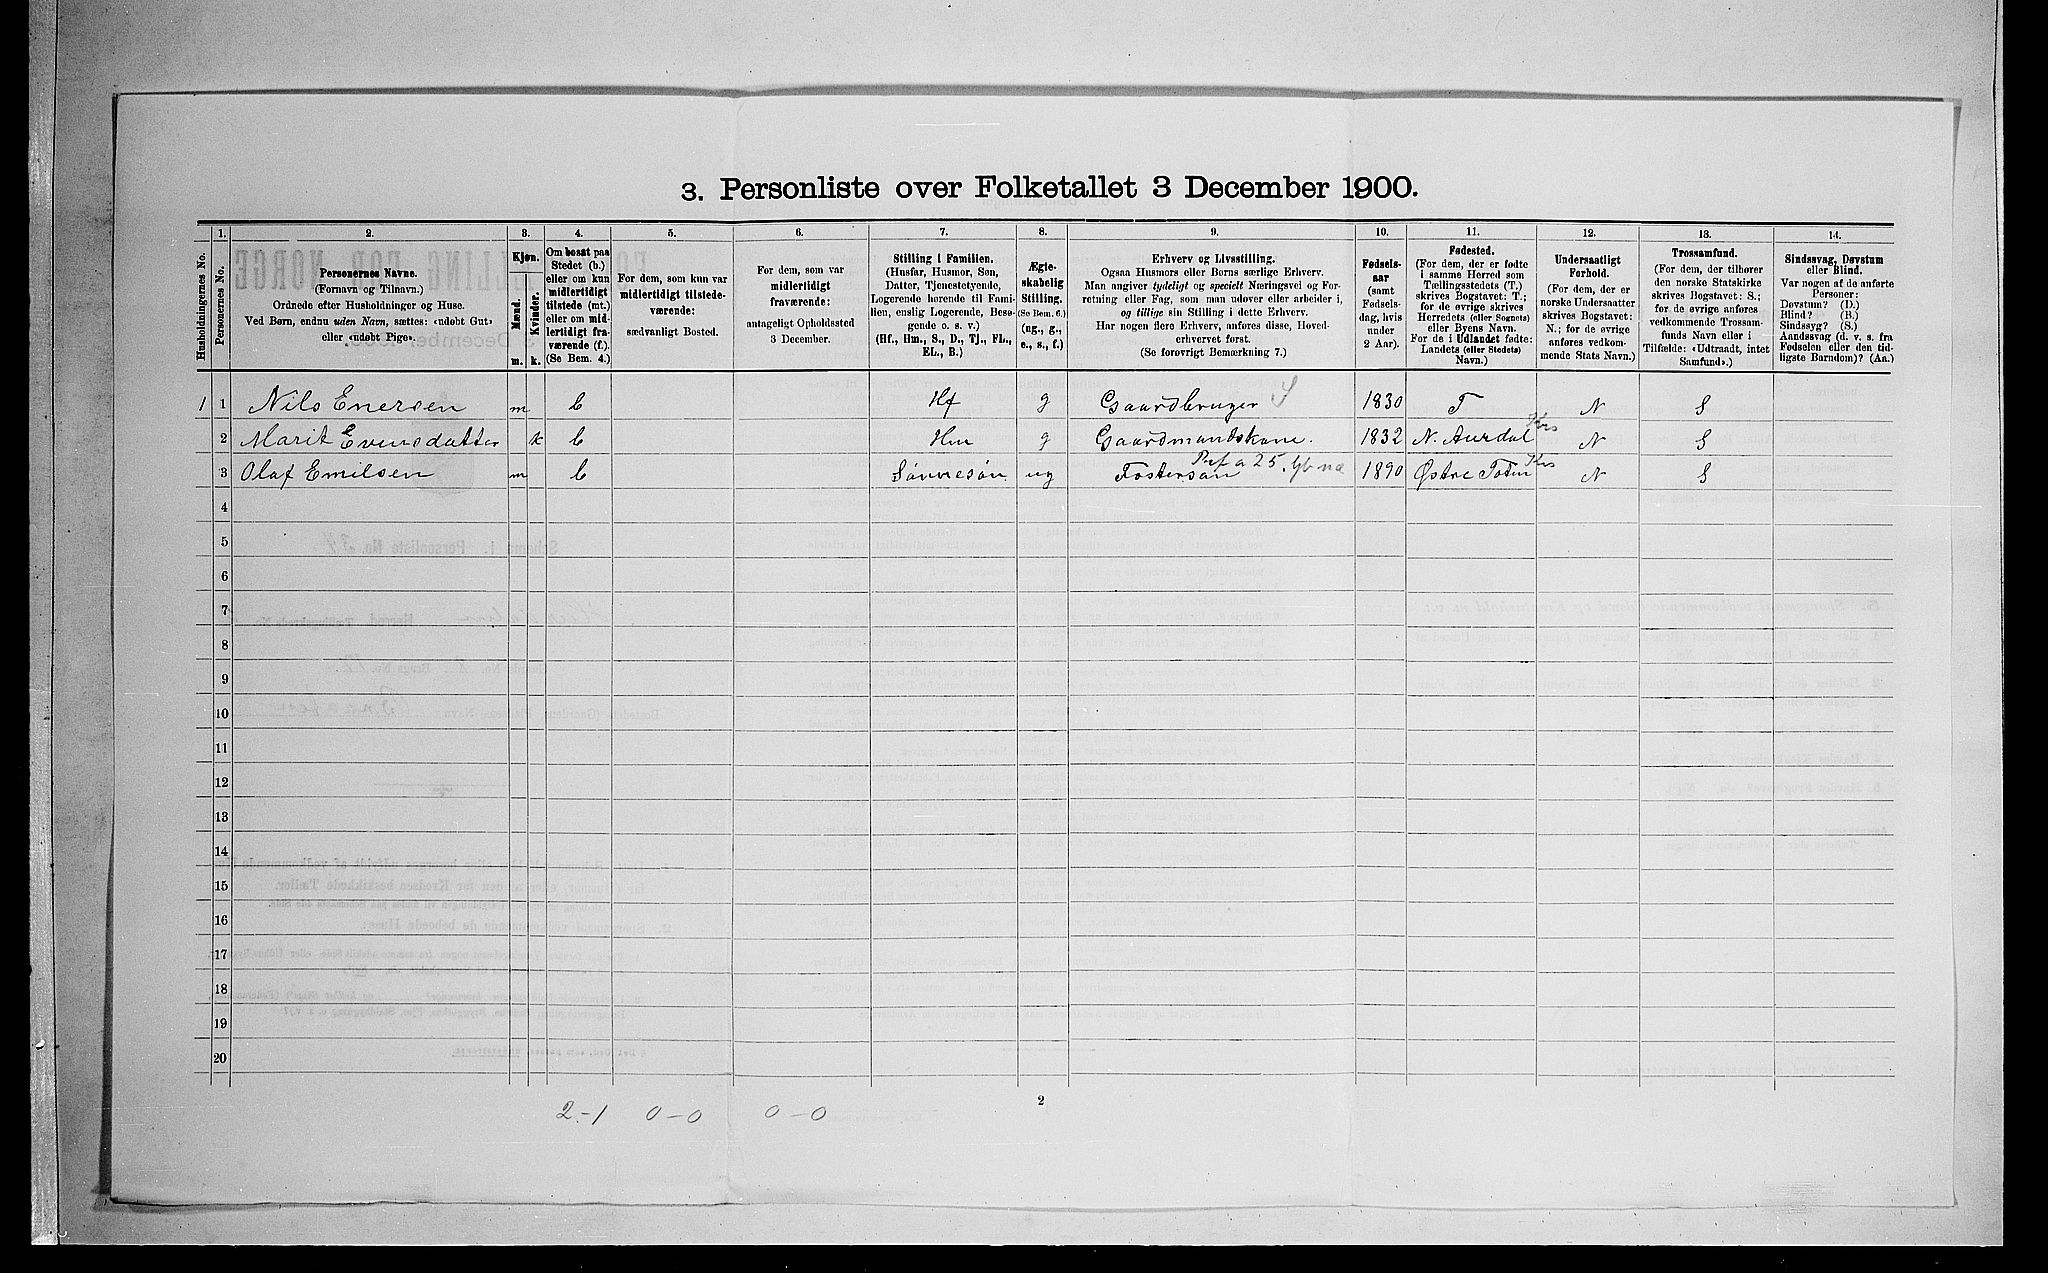 3. Personliste over Folketallet 3 December 1900.
Husholdningernes No.
1.
Personernes No.
2.
Personernes Navne.
(Fornavn og Tilnavn.)
Ordnede efter Husholdninger og Huse.
Ved Børn, endnu uden Navn, sættes: «udøbt Gut»
eller «udøbt Pige».
3.
Kjøn.
Mænd.
Kvinder.
m. k.
4.
Om bosat paa
Stedet (b.)
eller om kun
midlertidigt
tilstede (mt.)
eller om mid-
lertidigt fra-
værende (f.).
(Se Bem. 4.)
5.
For dem, som kun var
midlertidigt tilstede-
værende:
sædvanligt Bosted.
6.
For dem, som var
midlertidigt
fraværende:
antageligt Opholdssted
3 December.
7.
Stilling i Familien.
(Husfar, Husmor, Søn,
Datter, Tjenestetyende,
Logerende hørende til Fami-
lien, enslig Logerende, Besø-
gende o. s. v.)
(Hf., Hm., S., D., Tj., FL.,
EL., B.)
8.
Ægte-
skabelig
Stilling.
(Se Bem. 6.)
(ug., g.,
e., s., f.)
9.
Erhverv og Livsstilling.
Ogsaa Husmors eller Børns særlige Erhverv.
Man angiver tydeligt og specielt Næringsvei og For-
retning eller Fag, som man udøver eller arbeider i,
og tillige sin Stilling i dette Erhverv.
Har nogen flere Erhverv, anføres disse, Hoved-
erhvervet først.
(Se forøvrigt Bemærkning 7.)
10.
Fødsels-
aar
(samt
Fødsels-
dag, hvis
under
2 Aar).
11.
Fødested.
(For dem, der er fødte
i samme Herred som
Tællingsstedets (T.)
skrives Bogstavet: T.;
for de øvrige skrives
Herredets (eller Sognets)
eller Byens Navn.
For de i Udlandet fødte:
Landets (eller Stedets)
Navn.)
12.
Undersaatligt
Forhold.
(For dem, der er
norske Undersaatter
skrives Bogstavet:
N.; for de øvrige
anføres vedkom-
mende Stats Navn.)
13.
Trossamfund.
(For dem, der tilhører
den norske Statskirke
skrives Bogstavet: S.;
for de øvrige anføres
vedkommende Trossam-
funds Navn eller i
Tilfælde: «Udtraadt, intet
Samfund».)
14.
Sindssvag, Døvstum
eller Blind.
Var nogen af de anførte
Personer:
Døvstum? (D.)
Blind? (B.)
Sindssyg? (S.)
Aandssvag (d. v. s. fra
Fødselen eller den tid-
ligste Barndom)? (Aa.)
1 1 Nils Enersen m b Hf g Gaardbruger 1830 T N S
2 Marit Evensdatter k b Hm g Gaardmandskone. 1832 N. Aurdal Krs N S
3 Olaf Emilsen m b Sønnesøn ug Fostersøn 1890 Østre Toten Krs N S
4
5
6
7
8
9
10
11
12
13
14
15
16
17
18
19
20
2
2-1 0-0 0-0